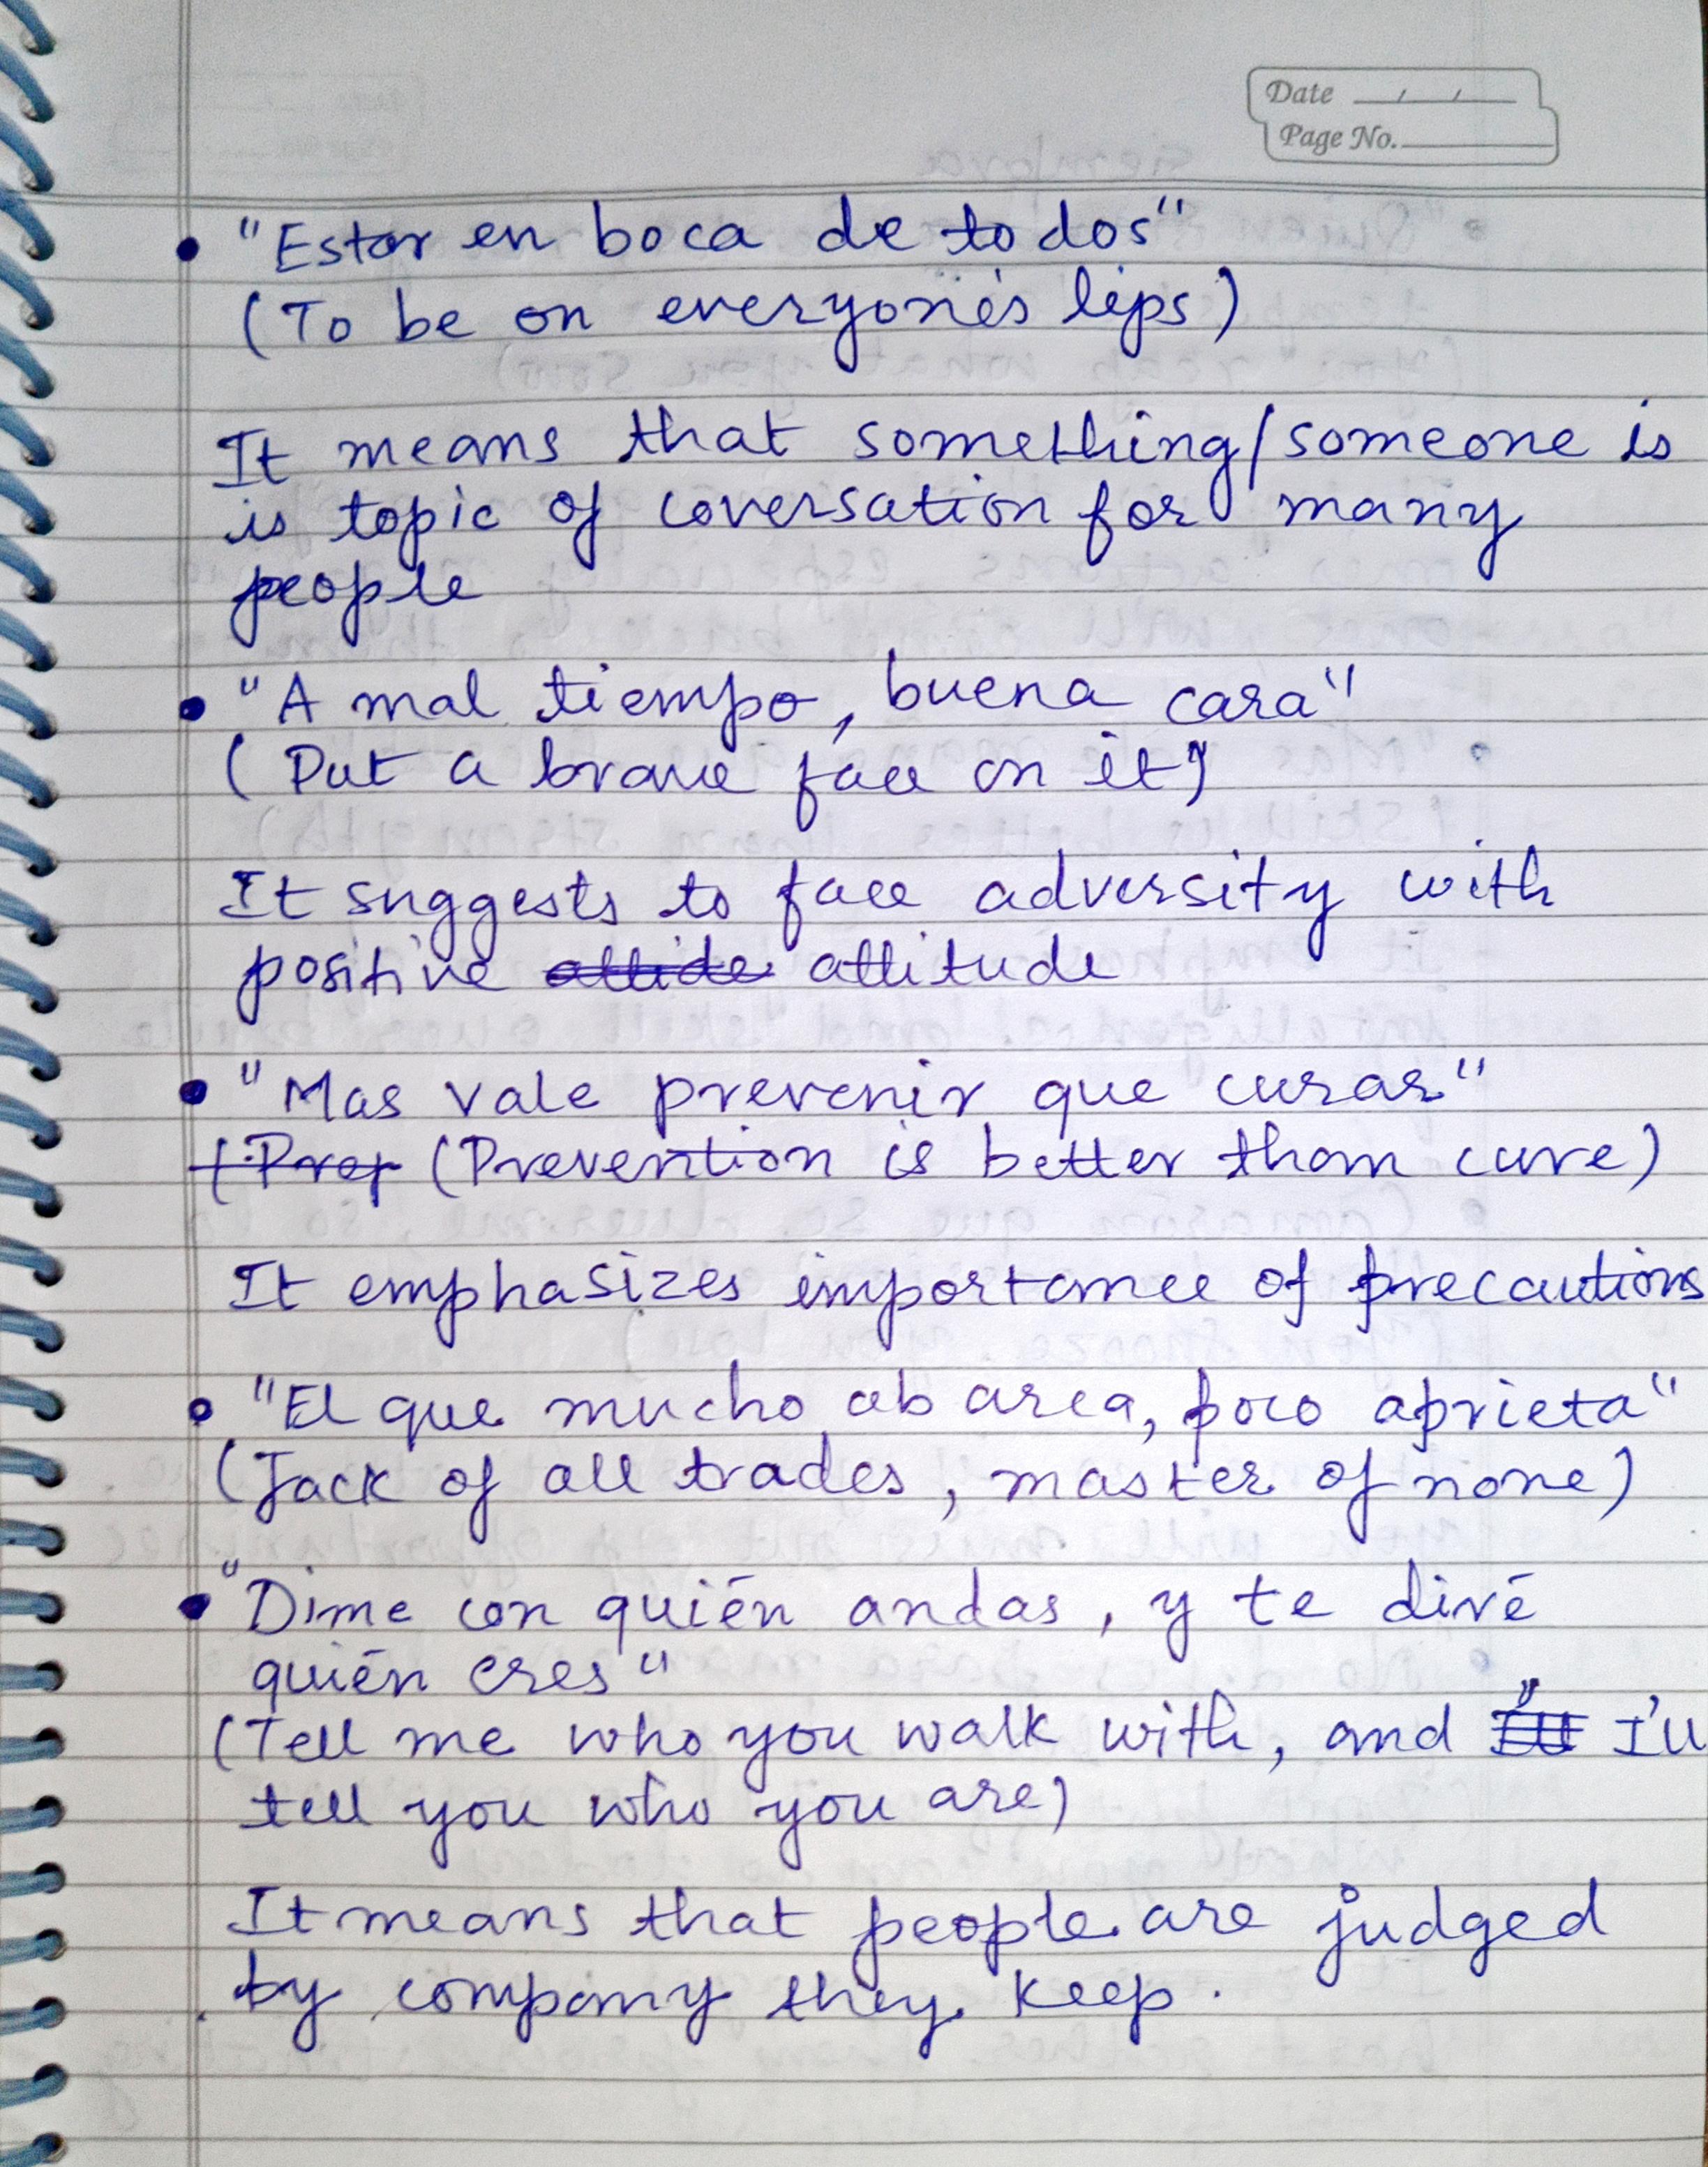 Date __/__/__
Page No.
• "Estar en boca de todos"
(To be on everyone's lips)
It means that something/someone is
is topic of coversation for many
people
• "A mal tiempo, buena cara"
(Put a brave face on it)
It suggests to face adversity with
positive attitude
• "Mas vale prevenir que curar"
(Prevention is better than cure)
It emphasizes importance of precautions
• "El que mucho abarca, poco aprieta"
(Jack of all trades, master of none)
• "Dime con quién andas, y te diré
quién eres"
(Tell me who you walk with, and I'll
tell you who you are)
It means that people are judged
by company they keep.